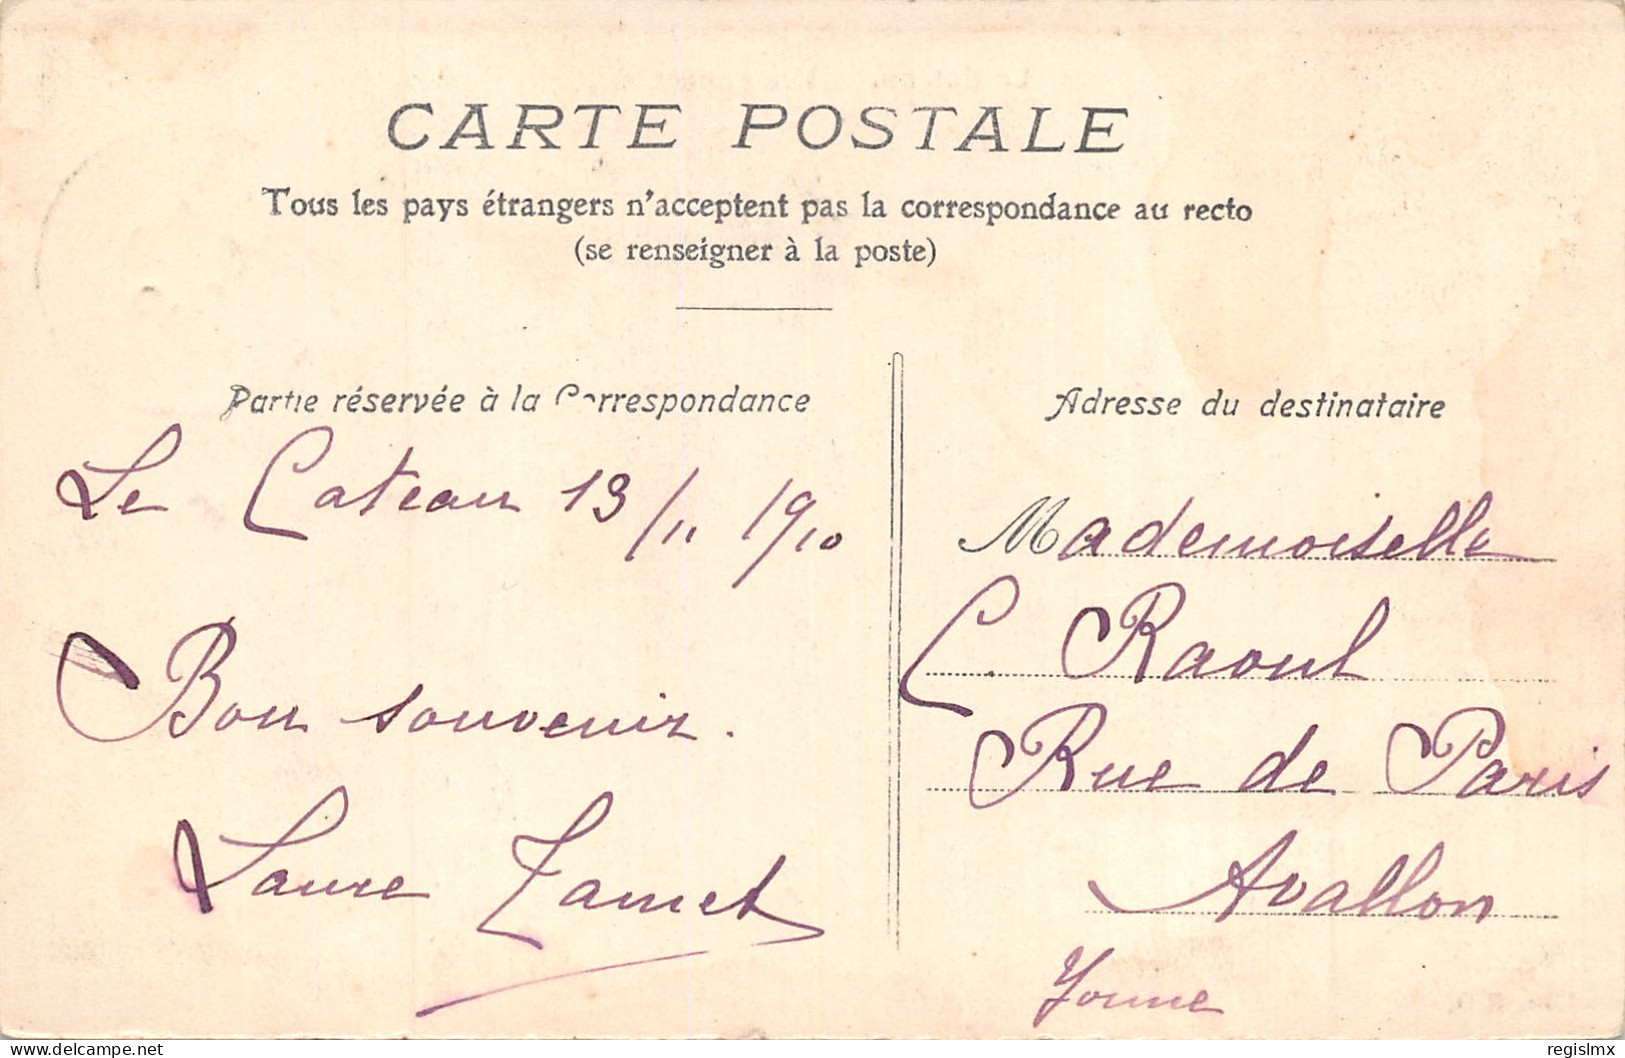 CARTE POSTALE
Tous les pays étrangers n'acceptent pas la correspondance au recto
(se renseigner à la poste)
Partie réservée à la Correspondance
Le Cateau 13/11 1910
Bon souvenir.
Laure Jamet
Adresse du destinataire
Mademoiselle
C. Raoul
Rue de Paris
Avallon
Yonne
www.delcampe.net
regislmx